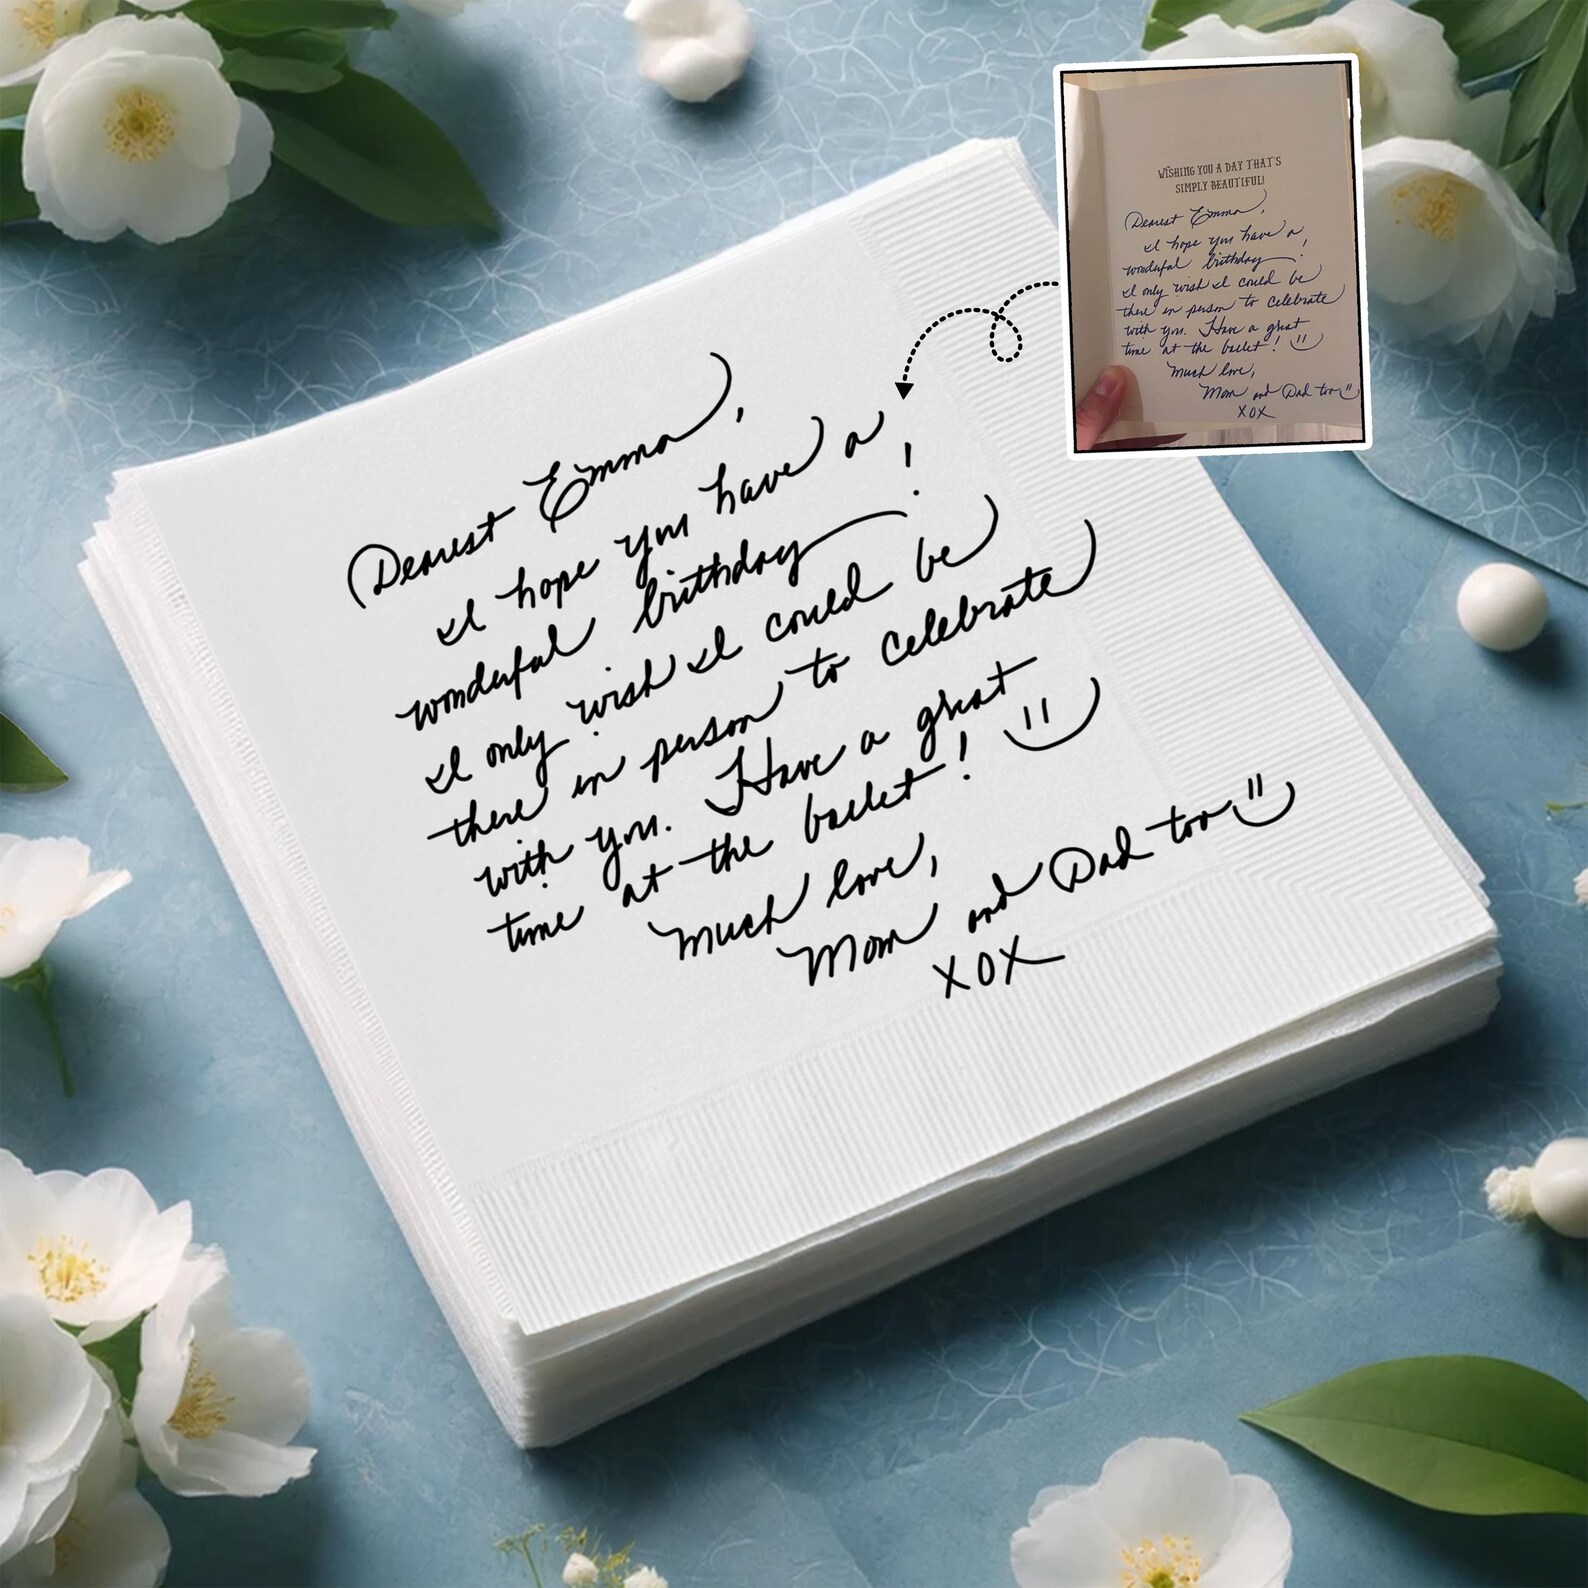 Dearest Emma,
I hope you have a
wonderful birthday!
I only wish I could be
there in person to celebrate
with you. Have a great
time at the ballet!
Much love,
Mom and Dad too
XOX
WISHING YOU A DAY THAT'S
SIMPLY BEAUTIFUL!
Dearest Emma,
I hope you have a
wonderful birthday!
I only wish I could be
there in person to celebrate
with you. Have a great
time at the ballet!
Much love,
Mom and Dad too
XOX